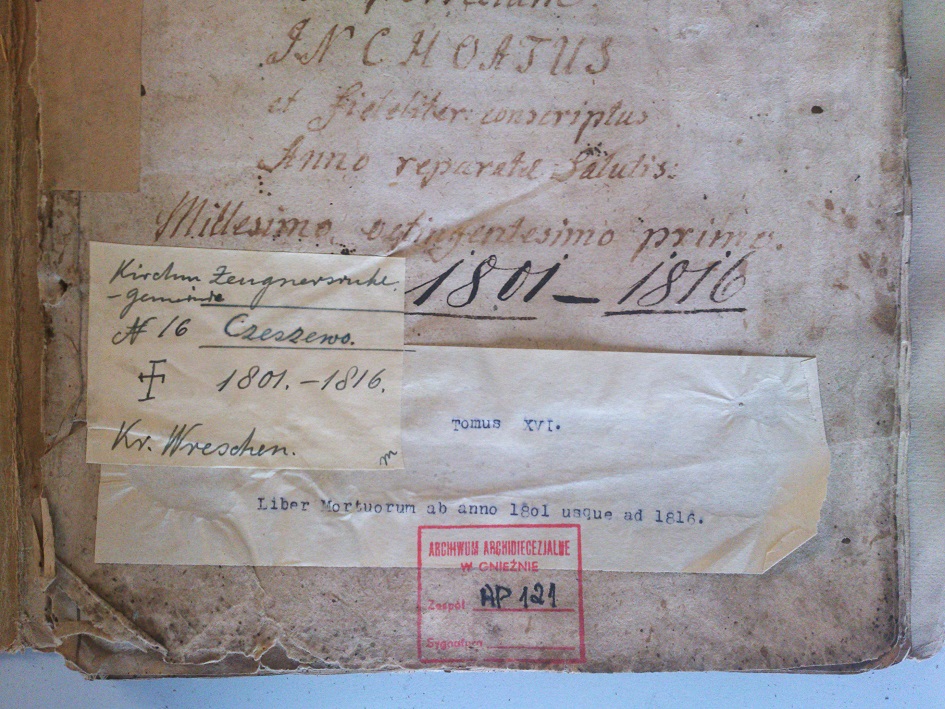 INCHOATUS
et fideliter conscriptus
Anno reparatæ Salutis:
Millesimo octingentesimo primo.
1801 – 1816
Kirchen
-gemeinde
N 16 Czeszewo.
1801. – 1816.
Kr. Wreschen.
m
Tomus XVI.
Liber Mortuorum ab anno 18o1 usque ad 1816.
ARCHIWUM ARCHIDIECEZJALNE
W GNIEŹNIE
Zespół AP 121
Sygnatura